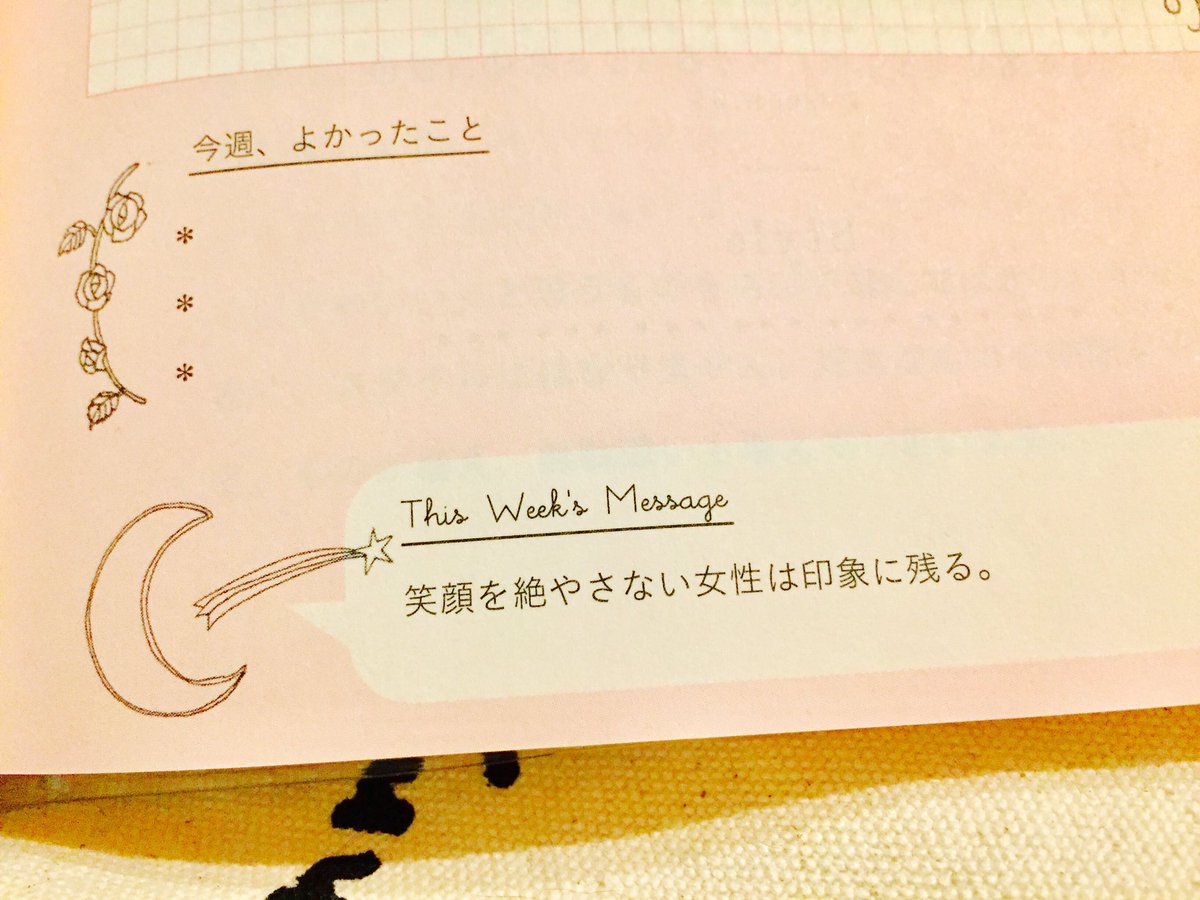 今週、よかったこと
*
*
*
This Week's Message
笑顔を絶やさない女性は印象に残る。